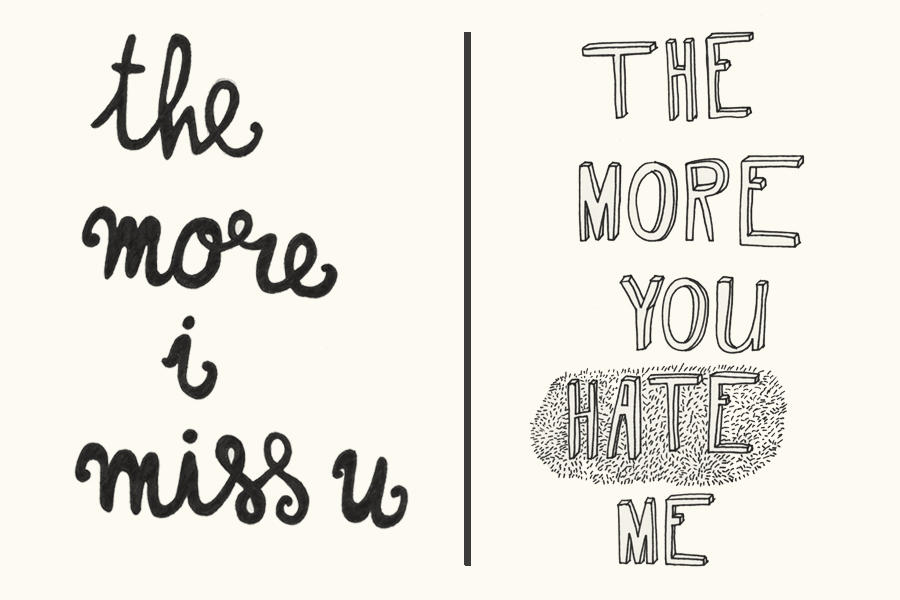 the
more
i
miss u
THE
MORE
YOU
HATE
ME